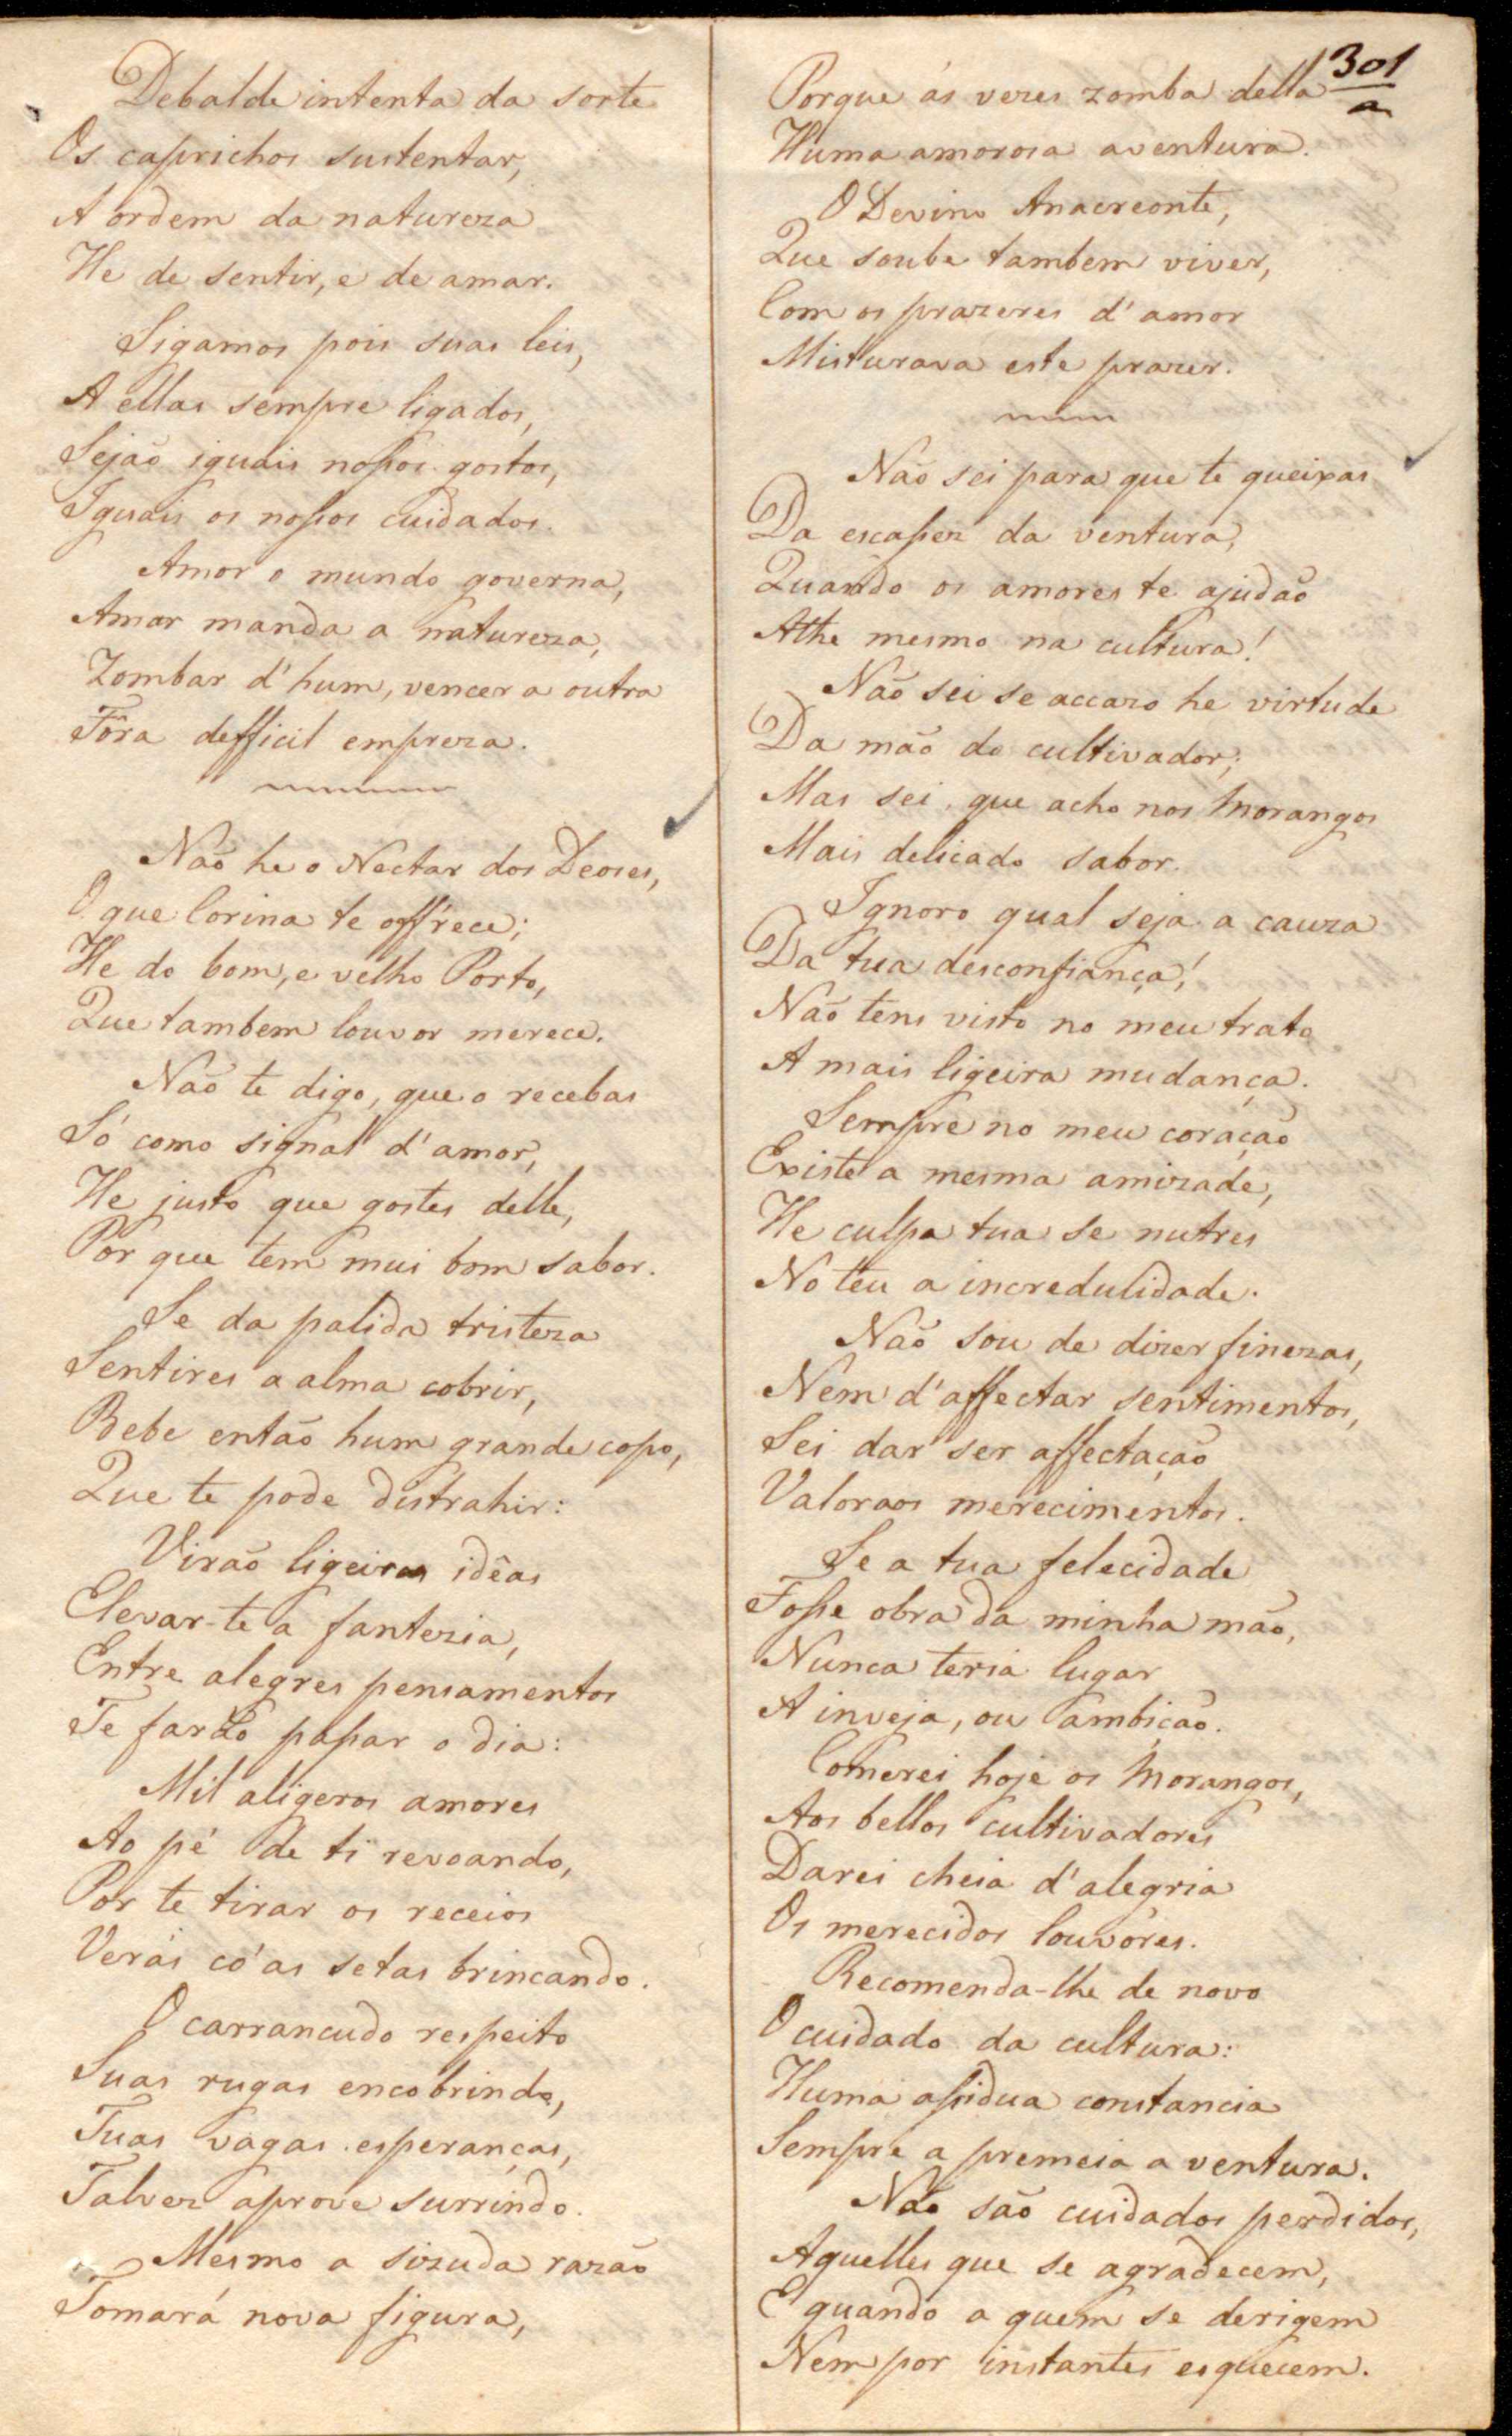 Debalde intenta da sorte
Os caprichos sustentar,
A ordem da natureza
He de sentir, e de amar.
Sigamos pois suas leis,
A ellas sempre ligados,
Sejão iguais nossos gostos,
Iguais os nossos cuidados.
Amor o mundo governa,
Amar manda a natureza,
Zombar d'hum, vencer a outra
Fôra defficil empreza.
Não he o Nectar dos Deoses,
O que Corina te off'rece;
He do bom, e velho Porto,
Que tambem louvor merece.
Não te digo, que o recebas
Só como signal d'amor,
He justo que gostes delle,
Por que tem mui bom sabor.
Se da palida tristeza
Sentires a alma cobrir,
Bebe então hum grande copo,
Que te pode distrahir:
Virão ligeiras idêas
Elevar-te a fantezia,
Entre alegres pensamentos
Te farão passar o dia:
Mil aligeros amores
Ao pé de ti revoando,
Por te tirar os receios
Verás có'as setas brincando.
O carrancudo respeito
Suas rugas encobrindo,
Tuas vagas esperanças,
Talvez aprove surrindo.
Mesmo a sizuda razão
Tomará nova figura,
301
a
Porque ás vezes zomba della
Huma amorosa aventura.
O Devino Anacreonte,
Que soube tambem viver,
Com os prazeres d'amor
Misturava este prazer.
Não sei para que te queixas
Da escassez da ventura,
Quando os amores te ajudão
Athe mesmo na cultura!
Não sei se accazo he virtude
Da mão do cultivador;
Mas sei, que acho nos Morangos
Mais delicado sabor.
Ignoro qual seja a cauza
Da tua desconfiança!
Não tens visto no meu trato
A mais ligeira mudança.
Sempre no meu coração
Existe a mesma amizade,
He culpa tua se nutres
No teu a incredulidade.
Não sou de dizer finezas,
Nem d'affectar sentimentos,
Sei dar ser affectação
Valor aos merecimentos.
Se a tua felecidade
Fosse obra da minha mão,
Nunca teria lugar
A inveja, ou ambição.
Comerei hoje os Morangos,
Aos bellos cultivadores
Darei cheia d'alegria
Os merecidos louvôres.
Recomenda-lhe de novo
O cuidado da cultura:
Huma assidua constancia
Sempre a premeia a ventura.
Não são cuidados perdidos,
Aquelles que se agradecem,
E quando a quem se derigem
Nem por instantes esquecem.